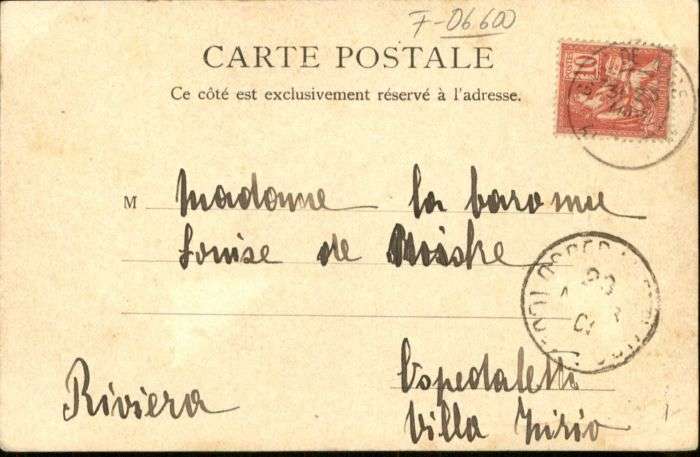 F-06600
CARTE POSTALE
Ce côté est exclusivement réservé à l'adresse.
M Madame la baronne
Louise de
Ospedaletti
Riviera
Villa